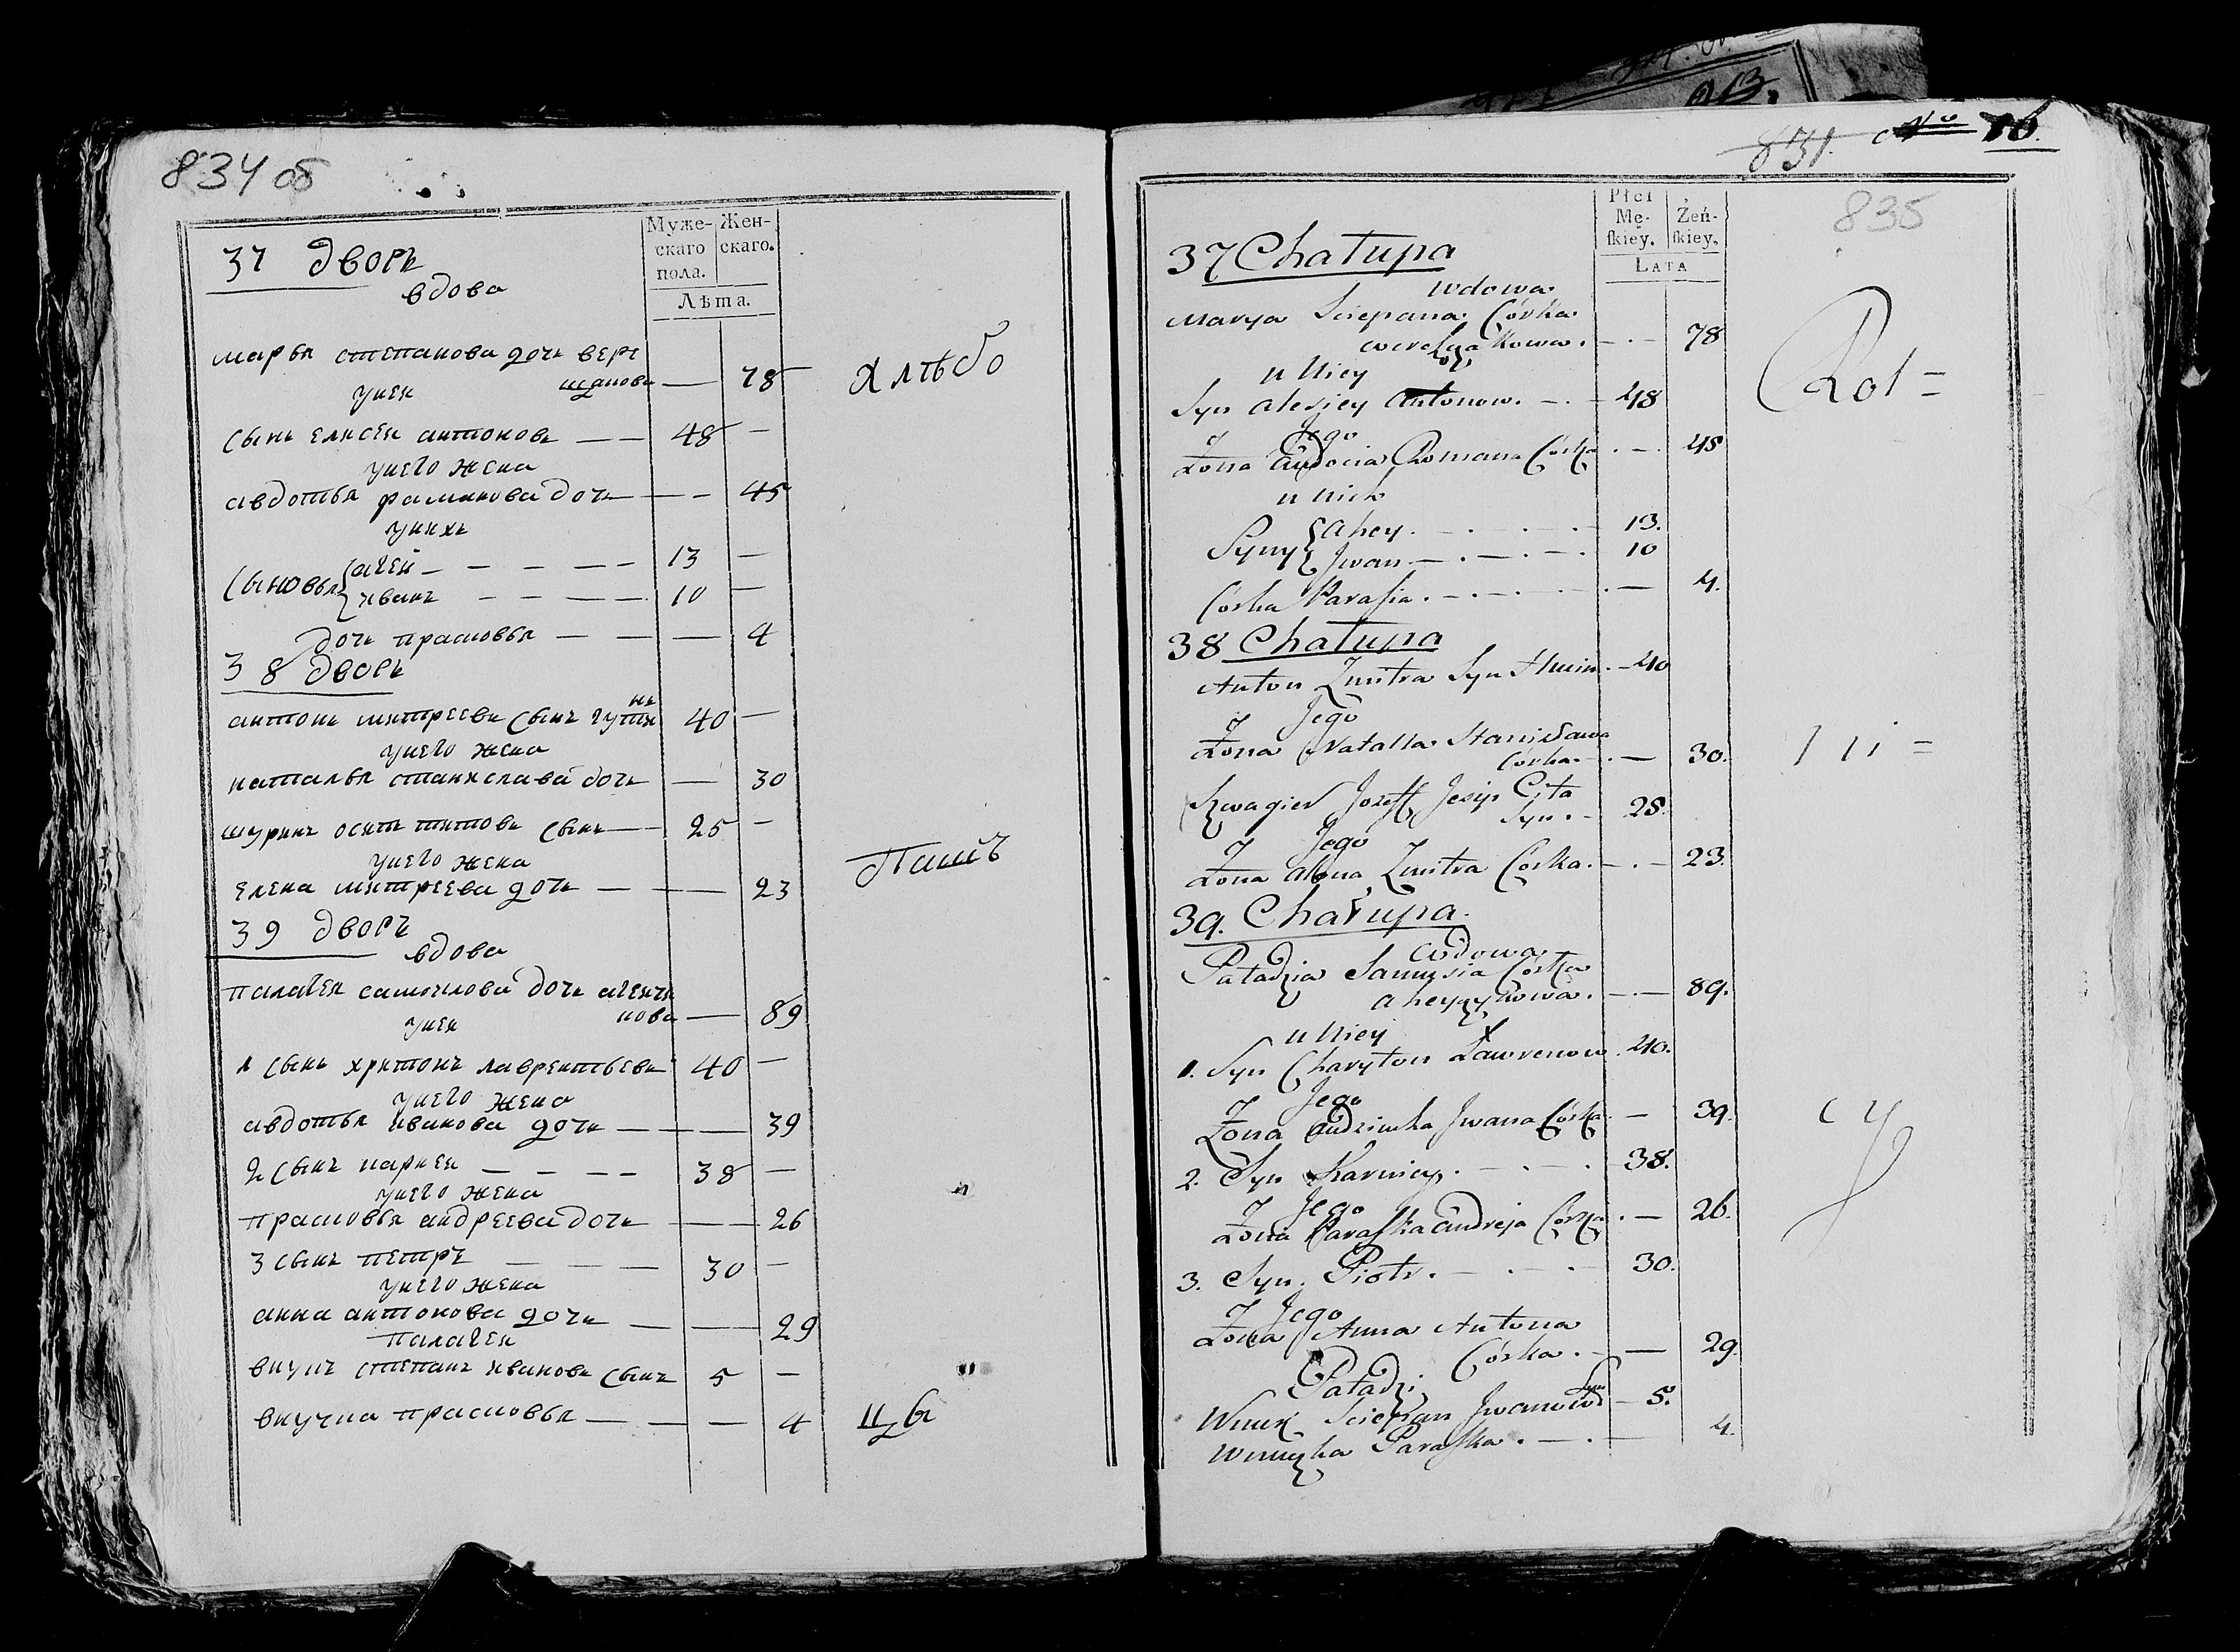 834 об
Муже- Жен-
скаго скаго.
пола.
Лѣта.
37 дворъ
вдова
марья степанова дочь верг
щакова — 78
унея
хлѣбо
сынъ елисей антоновъ — — 48 —
унего жена
авдотья раманова дочь — — 45
унихъ
сыновья { агей — — — — — 13 —
иванъ — — — — 10 —
дочь прасковья — — — 4
38 дворъ
антонъ митреевъ сынъ 40 —
унего жена
наталья станиславава дочь — 30
шуринъ осипъ титовъ сынъ — 25 —
унего жена
елена митреева дочь — — 23
Пашъ
39 дворъ
вдова
палагея самойлова дочь агейчи
кова — 89
унея
1 сынъ харитонъ лаврентьевъ 40 —
унего жена
авдотья иванова дочь — — 39
2 сынъ карней — — — — 38 —
унего жена
прасковья андреева дочь — — 26
3 сынъ петръ — — — 30 —
унего жена
анна антонова дочь — — 29
Палагеи
внукъ степанъ ивановъ сынъ 5 —
внучка прасковья — — — 4
цы
831. No 16.
835
Płci
Mę- Żeń-
skiey. skiey.
LATA
37 Chałupa
wdowa
Marya Sciepana Córka
— 78
u Niey
Rol=
Syn Alexiey Antonow. — 48
J Jego
Żona Audocia Romana Córka — 45
u Nich
Syny { Ahey. — 13.
Jwan — 10
Córka Parasia. — 4.
38 Chałupa
Anton Zmitra Syn — 40
J Jego
Żona Natalla Stanisława
Córka. — 30.
Szwagier Jozeff Jesip Cita
Syn. — 25.
J Jego
Żona Alena Zmitra Córka. — 23.
ni=
39. Chałupa.
wdowa
Paładzia Samusia Córka
aheyczykowa. — 89.
u Niey
1. Syn Charyton Ławrenow. 40.
J Jego
Żona Audziucha Jwana Córka — 39.
cy
2. Syn Karniey. — 38.
J Jego
Żona Paraska Andreja Córka. — 26.
3. Syn. Piotr. — 30.
J Jego
Żona Anna Antona
Córka. — 29.
Paładzi
Wnuk Sciepan Jwanow Syn — 5.
Wnuczka Paraska. — 4.